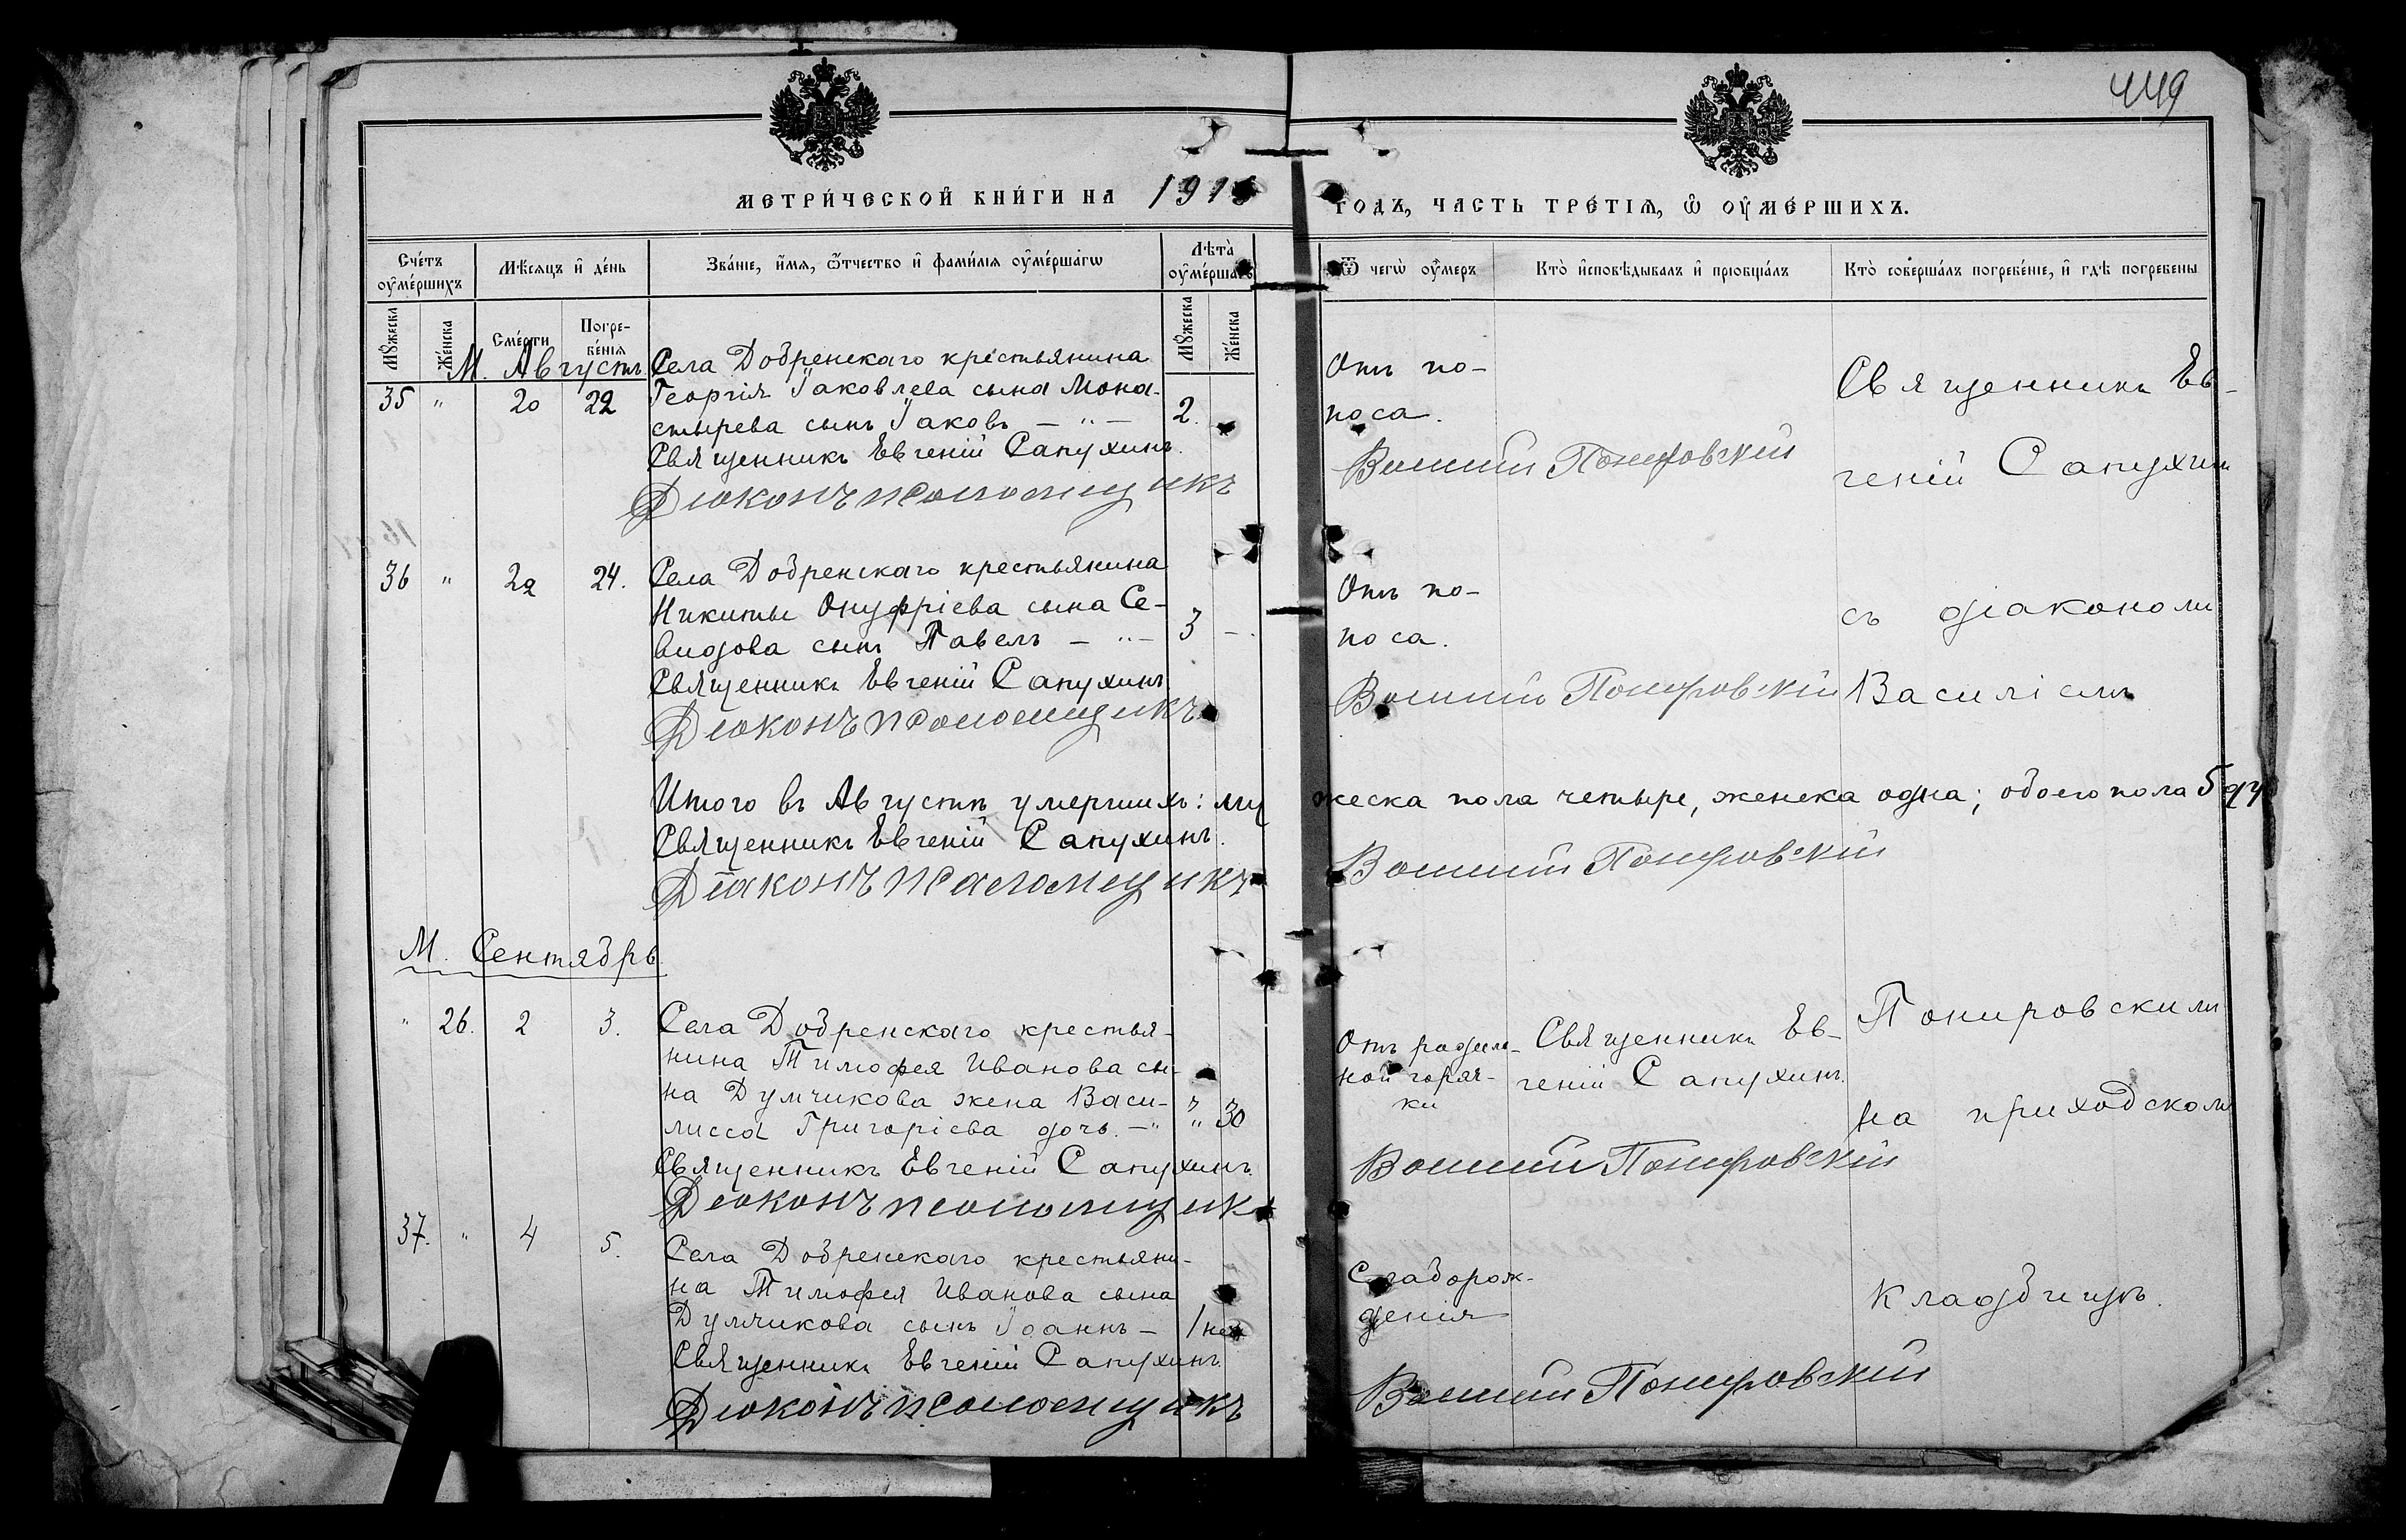 449
МЕТРИ́ЧЕСКОЙ КНИ́ГИ НА 191
ГОДЪ, ЧАСТЬ ТРЕ́ТІѦ, Ѡ ОУ҆МЕ́РШИХЪ.
Сче́тъ оу҆ме́ршихъ
Мѣ́сяцъ и҆ де́нь
Зва́нїе, и҆́мя, ѻ҆́тчество и҆ фами́лїѧ оу҆ме́ршагѡ
Лѣта̀ оу҆ме́ршагѡ
Ѿ чегѡ̀ оу҆́меръ
Кто̀ и҆сповѣ́дывалъ и҆ прїобща́лъ
Кто̀ соверша́лъ погребе́нїе, и҆ гдѣ̀ погребены
Мꙋ́жеска
Же́нска
Сме́рти
Погре-
бе́нїѧ
Мꙋ́жеска
Же́нска
М. Августъ
35 " 20 22
Села Добренскаго крестьянина
Георгія Іаковлева сына Мона-
стырева сынъ Іаковъ — " — 2.
Священникъ Евгеній Сапухинъ.
Діаконъ псаломщикъ
Отъ по-
носа.
Василій Понировскій
Священникъ Ев-
геній Сапухинъ
36 " 22 24.
Села Добренскаго крестьянина
Никиты Онуфріева сына Се-
видова сынъ Павелъ — " — 3 —.
Священникъ Евгеній Сапухинъ
Діаконъ псаломщикъ
Отъ по-
носа.
Василій Понировскій
съ діакономъ
Василіемъ
Итого въ Августѣ умершихъ: му
жеска пола четыре, женска одна; обоего пола 5 ду
Священникъ Евгеній Сапухинъ.
Діаконъ псаломщикъ
Василій Понировскій
М. Сентябрь
" 26. 2 3.
Села Добренскаго крестья-
нина Тимофея Иванова сы-
на Думчикова жена Васи-
лисса Григорієва дочь. — " " 30
Священникъ Евгеній Сапухинъ.
Діаконъ псаломщикъ
Отъ родиль-
ной горяч-
ки
Священникъ Ев-
геній Сапухинъ.
Василій Понировскій
Понировскимъ
на приходскомъ
37. " 4 5.
Села Добренскаго крестьяни-
на Тимофея Иванова сына
Думчикова сынъ Іоаннъ — 1 нед
Священникъ Евгеній Сапухинъ.
Діаконъ псаломщикъ
Слаборож-
денія
Василій Понировскій
кладбищѣ.